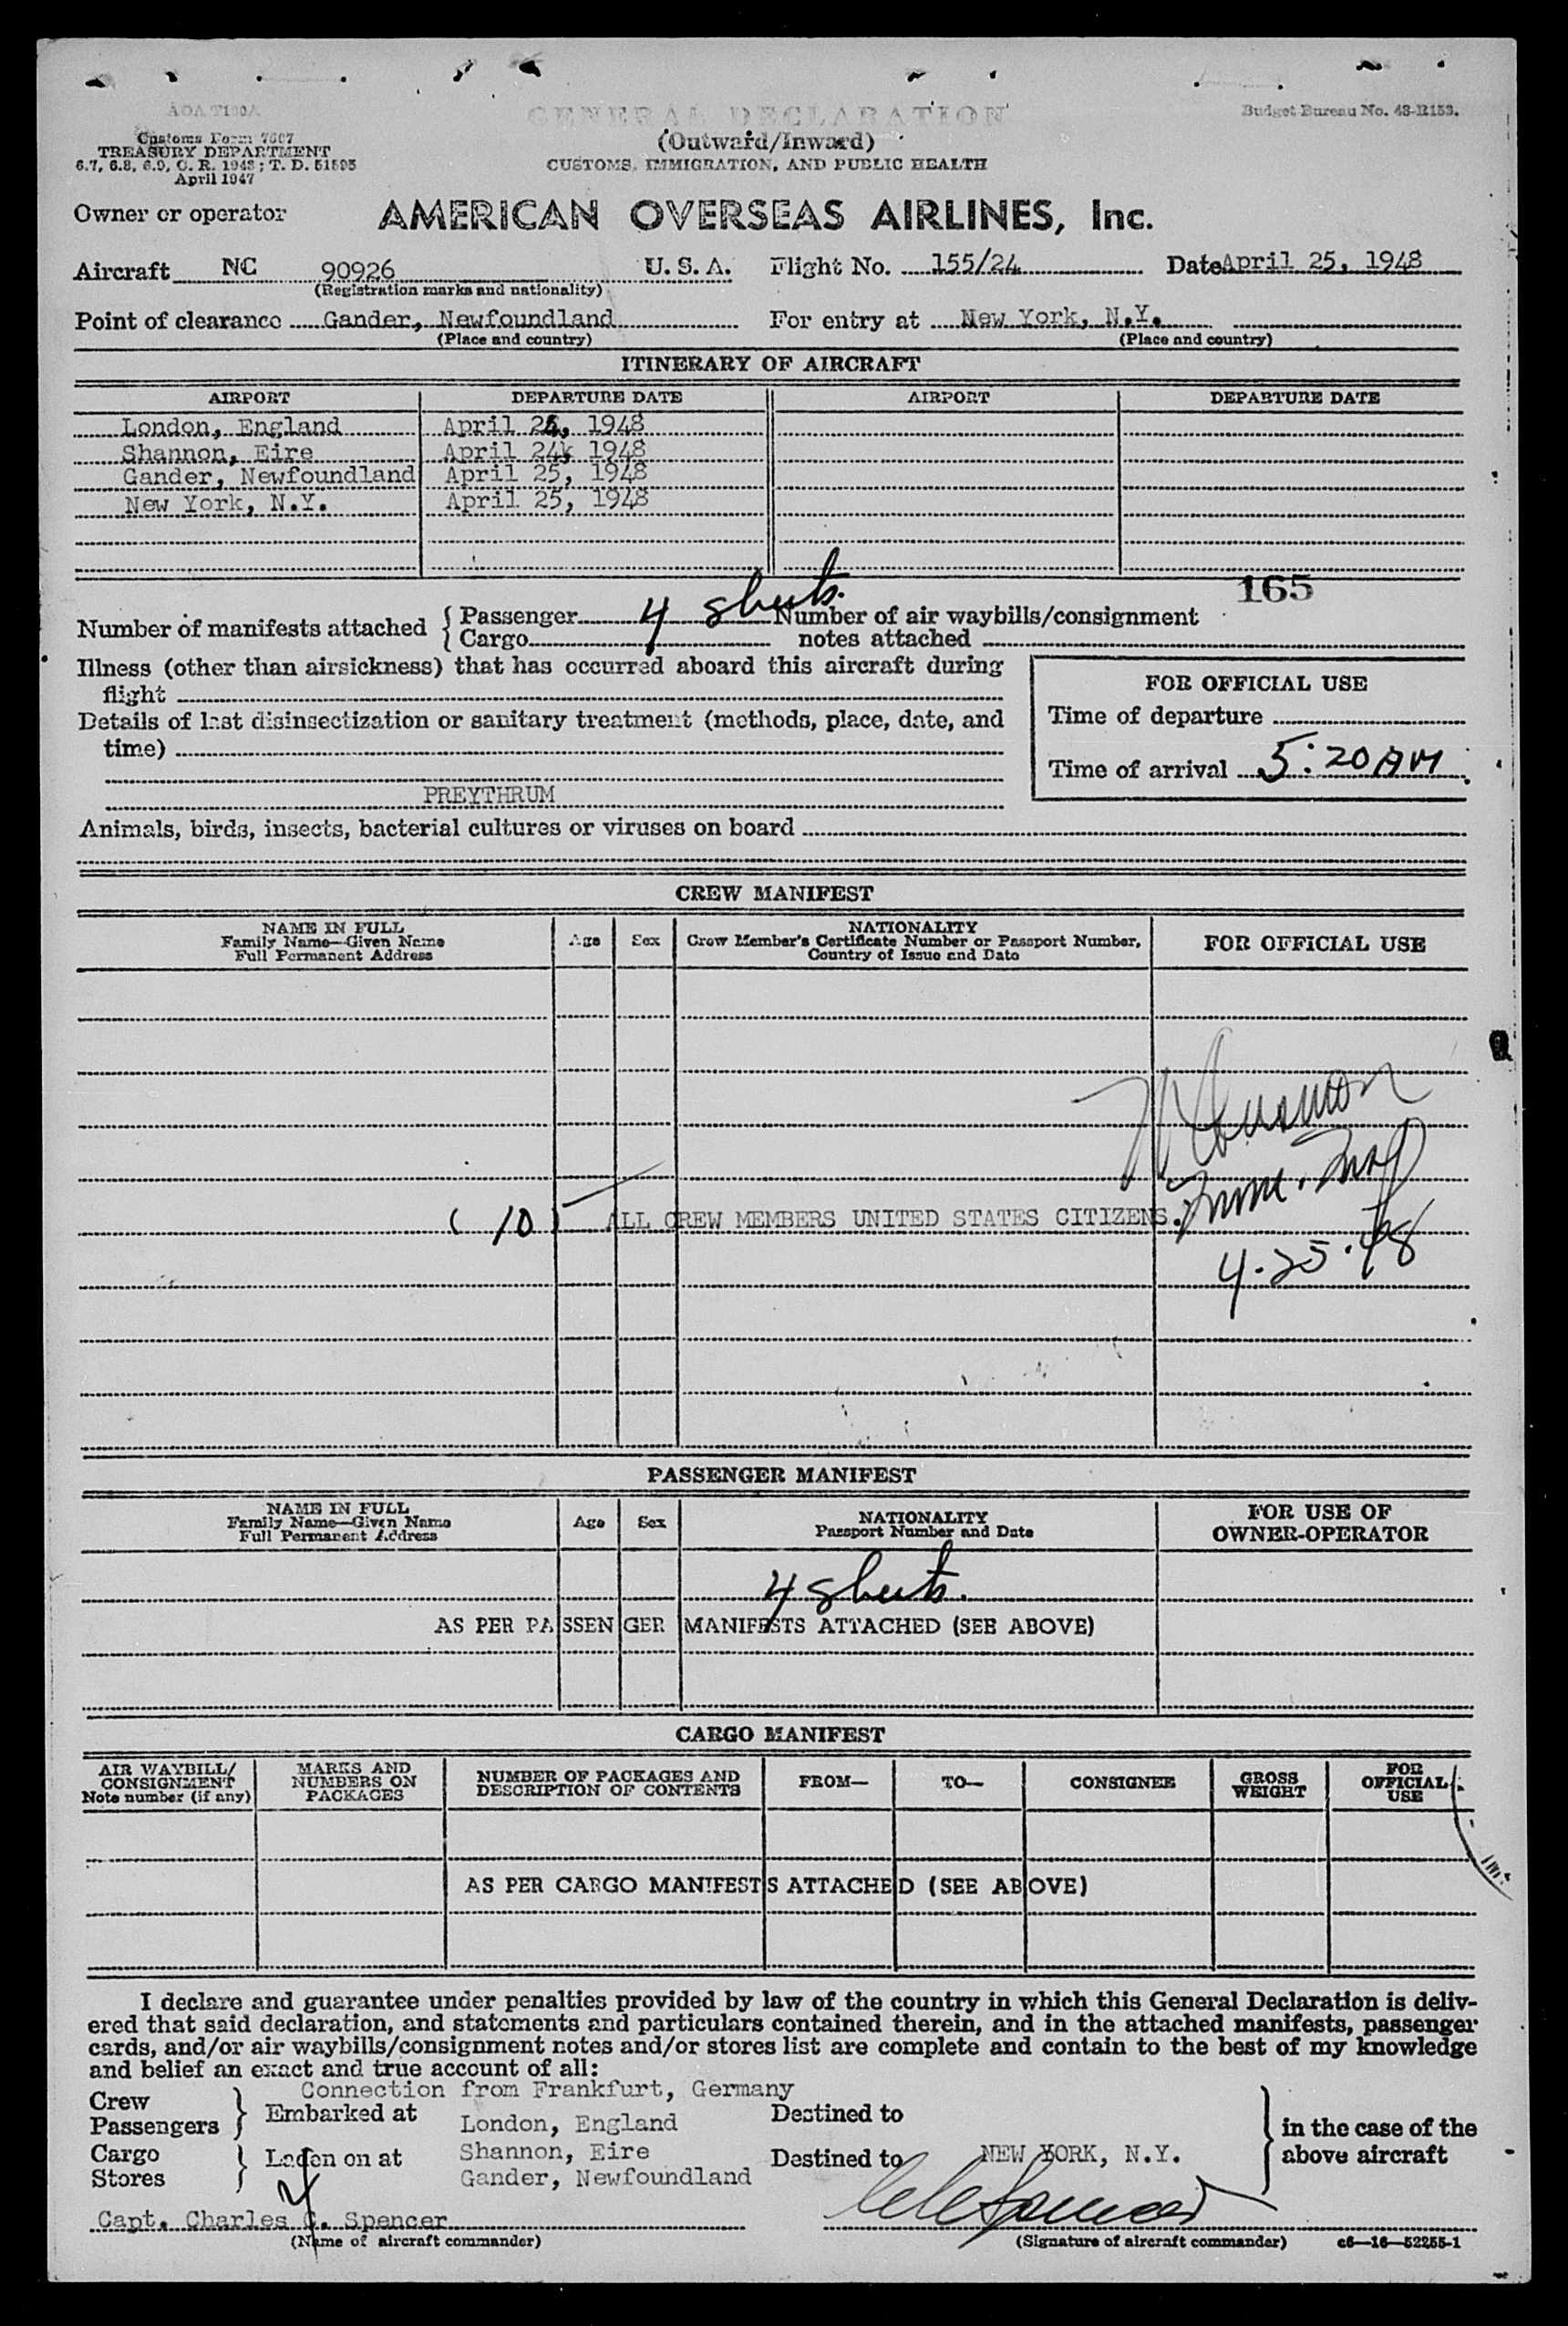 AOA T100A
GENERAL DECLARATION
Budget Bureau No. 43-R153.
Customs Form 7507
(Outward/Inward)
TREASURY DEPARTMENT
CUSTOMS, IMMIGRATION, AND PUBLIC HEALTH
6.7, 6.8, 6.9, C. R. 1943; T. D. 51595
April 1947
Owner or operator AMERICAN OVERSEAS AIRLINES, Inc.
Aircraft NC 90926 U. S. A. Flight No. 155/24 Date April 25, 1948
(Registration marks and nationality)
Point of clearance Gander, Newfoundland For entry at New York, N.Y.
(Place and country) (Place and country)
ITINERARY OF AIRCRAFT
AIRPORT DEPARTURE DATE AIRPORT DEPARTURE DATE
London, England April 24, 1948
Shannon, Eire April 24, 1948
Gander, Newfoundland April 25, 1948
New York, N.Y. April 25, 1948
165
Number of manifests attached { Passenger 4 sheets. Number of air waybills/consignment
Cargo notes attached
Illness (other than airsickness) that has occurred aboard this aircraft during
flight
FOR OFFICIAL USE
Details of last disinsectization or sanitary treatment (methods, place, date, and
time)
Time of departure
Time of arrival 5:20 AM
PREYTHRUM
Animals, birds, insects, bacterial cultures or viruses on board
CREW MANIFEST
NAME IN FULL
Family Name—Given Name
Full Permanent Address
Age Sex
NATIONALITY
Crew Member's Certificate Number or Passport Number,
Country of Issue and Date
FOR OFFICIAL USE
Imm. Insp
( 10 ) ALL CREW MEMBERS UNITED STATES CITIZENS.
4-25-48
PASSENGER MANIFEST
NAME IN FULL
Family Name—Given Name
Full Permanent Address
Age Sex
NATIONALITY
Passport Number and Date
FOR USE OF
OWNER-OPERATOR
4 sheets.
AS PER PASSENGER MANIFESTS ATTACHED (SEE ABOVE)
CARGO MANIFEST
AIR WAYBILL/
CONSIGNMENT
Note number (if any)
MARKS AND
NUMBERS ON
PACKAGES
NUMBER OF PACKAGES AND
DESCRIPTION OF CONTENTS
FROM— TO— CONSIGNEE
GROSS
WEIGHT
FOR
OFFICIAL
USE
AS PER CARGO MANIFESTS ATTACHED (SEE ABOVE)
I declare and guarantee under penalties provided by law of the country in which this General Declaration is deliv-
ered that said declaration, and statements and particulars contained therein, and in the attached manifests, passenger
cards, and/or air waybills/consignment notes and/or stores list are complete and contain to the best of my knowledge
and belief an exact and true account of all:
Connection from Frankfurt, Germany
Crew
Passengers } Embarked at London, England Destined to
in the case of the
above aircraft
Cargo
Stores } Laden on at Shannon, Eire Destined to NEW YORK, N.Y.
Gander, Newfoundland
Capt. Charles C. Spencer
(Name of aircraft commander) (Signature of aircraft commander) c6—16—52255-1